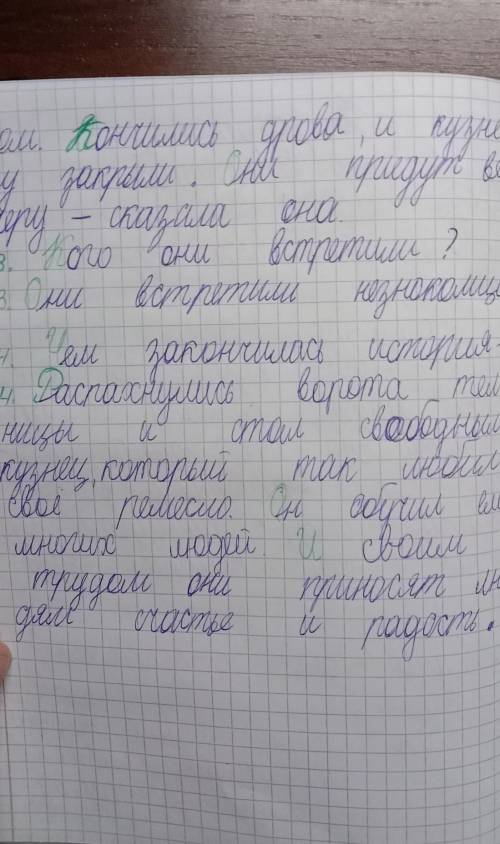 ом. Кончились дрова, и кузне
у закрыли. Они придут ве
черу - сказала она.
3. Кого они встретили?
3. Они встретили незнокомца
4. Чем закончилась история
4. Распахнулись ворота тем
ницы и стал свободным
кузнец, который так любил
своё ремесло. Он обучил ем
многих людей. И своим
трудом они приносят лю
дям счастье и радость.